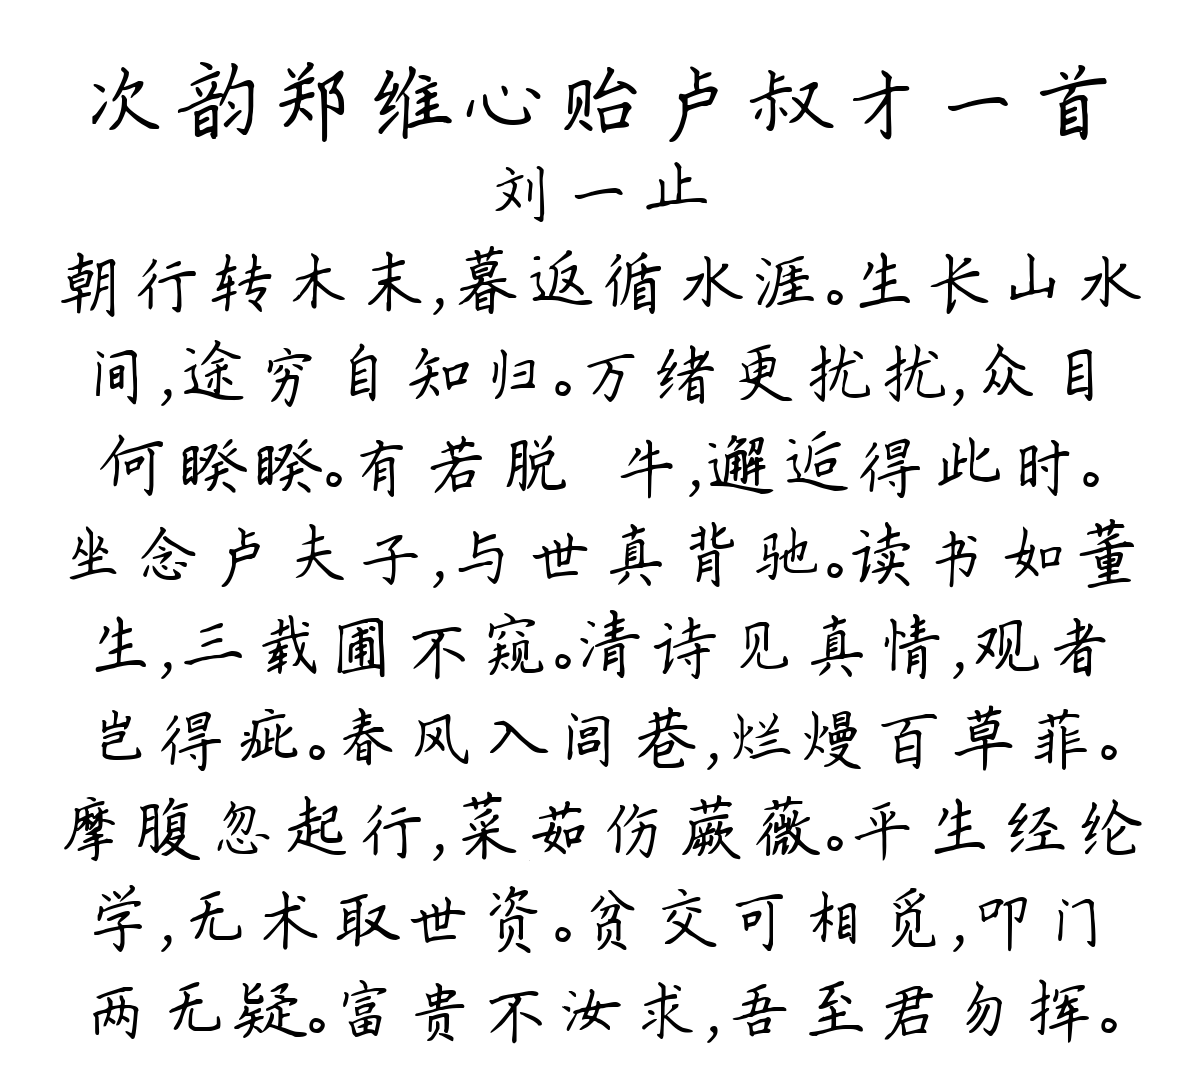 次韵郑维心贻卢叔才一首
刘一止
朝行转木末,暮返循水涯。生长山水
间,途穷自知归。万绪更扰扰,众目
何睽睽。有若脱 牛,邂逅得此时。
坐念卢夫子,与世真背驰。读书如董
生,三载圃不窥。清诗见真情,观者
岂得疵。春风入闾巷,烂熳百草菲。
摩腹忽起行,菜茹伤蕨薇。平生经纶
学,无术取世资。贫交可相觅,叩门
两无疑。富贵不汝求,吾至君勿挥。